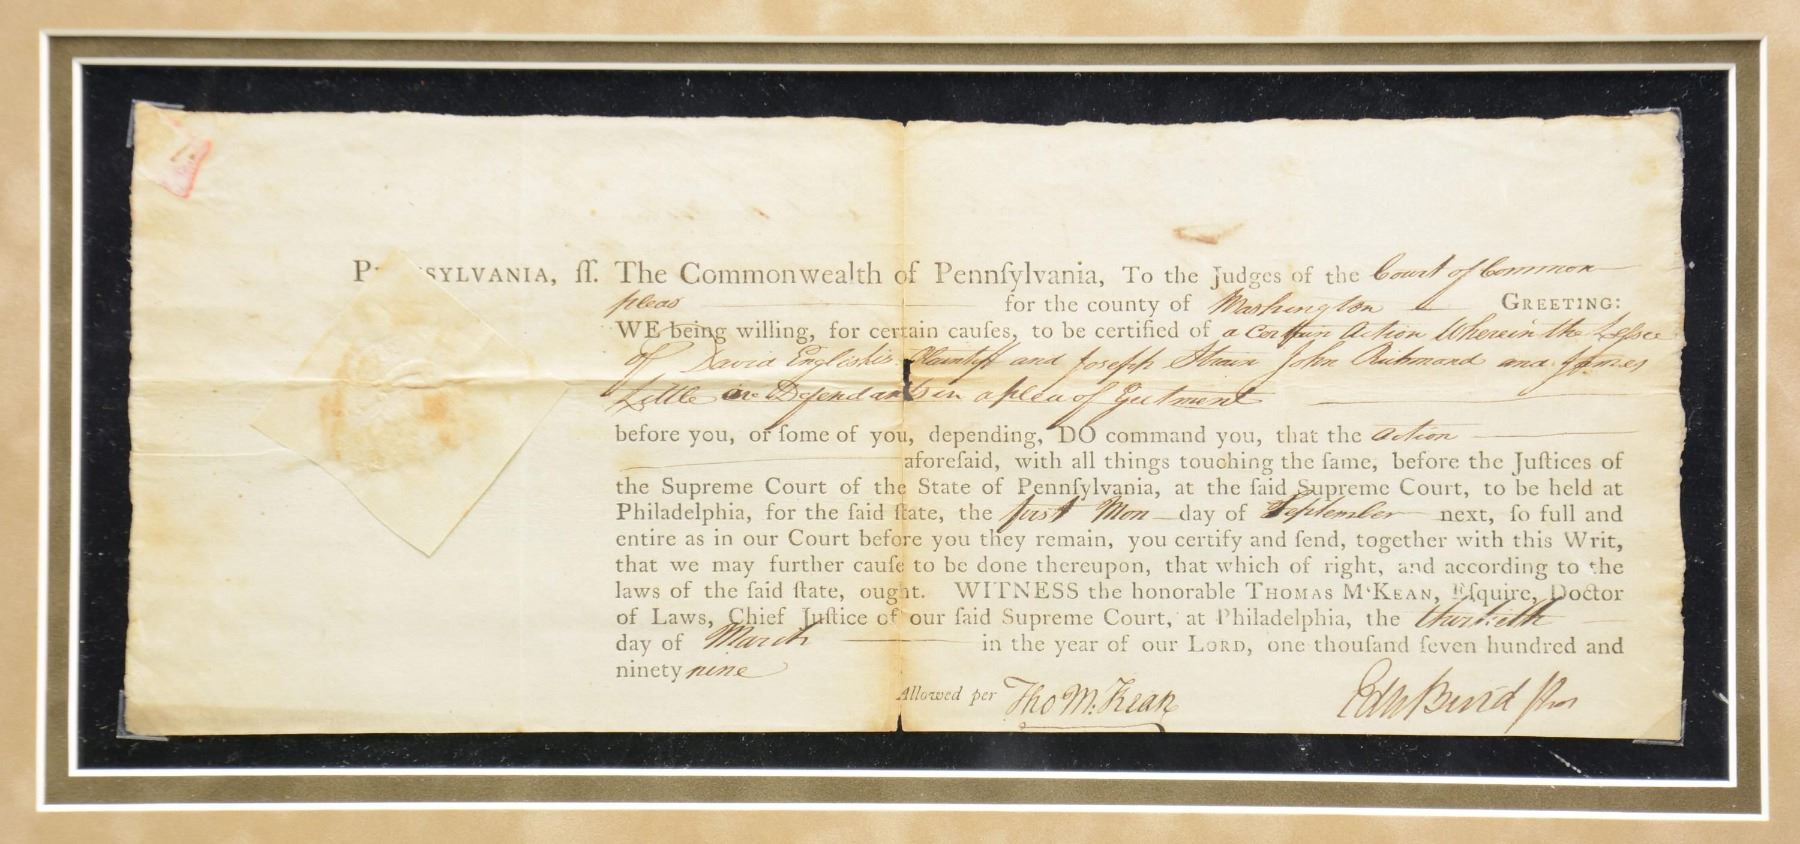 P SYLVANIA, ſſ. The Commonwealth of Pennſylvania, To the Judges of the Court of Common
pleas for the county of Washington GREETING:
WE being willing, for certain cauſes, to be certified of a certain action Wherein the Lessee
of David English is Plaintiff and Joseph Strain John Richmond and James
Little are Defendants in a plea of Ejectment
before you, or ſome of you, depending, DO command you, that the action
aforeſaid, with all things touching the ſame, before the Juſtices of
the Supreme Court of the State of Pennſylvania, at the ſaid Supreme Court, to be held at
Philadelphia, for the ſaid ſtate, the first Mon day of September next, ſo full and
entire as in our Court before you they remain, you certify and ſend, together with this Writ,
that we may further cauſe to be done thereupon, that which of right, and according to the
laws of the ſaid ſtate, ought. WITNESS the honorable THOMAS M‘KEAN, Eſquire, Doctor
of Laws, Chief Juſtice of our ſaid Supreme Court, at Philadelphia, the thirtieth
day of March in the year of our LORD, one thouſand ſeven hundred and
ninety nine
Allowed per Tho M:Kean Edw Burd Pro